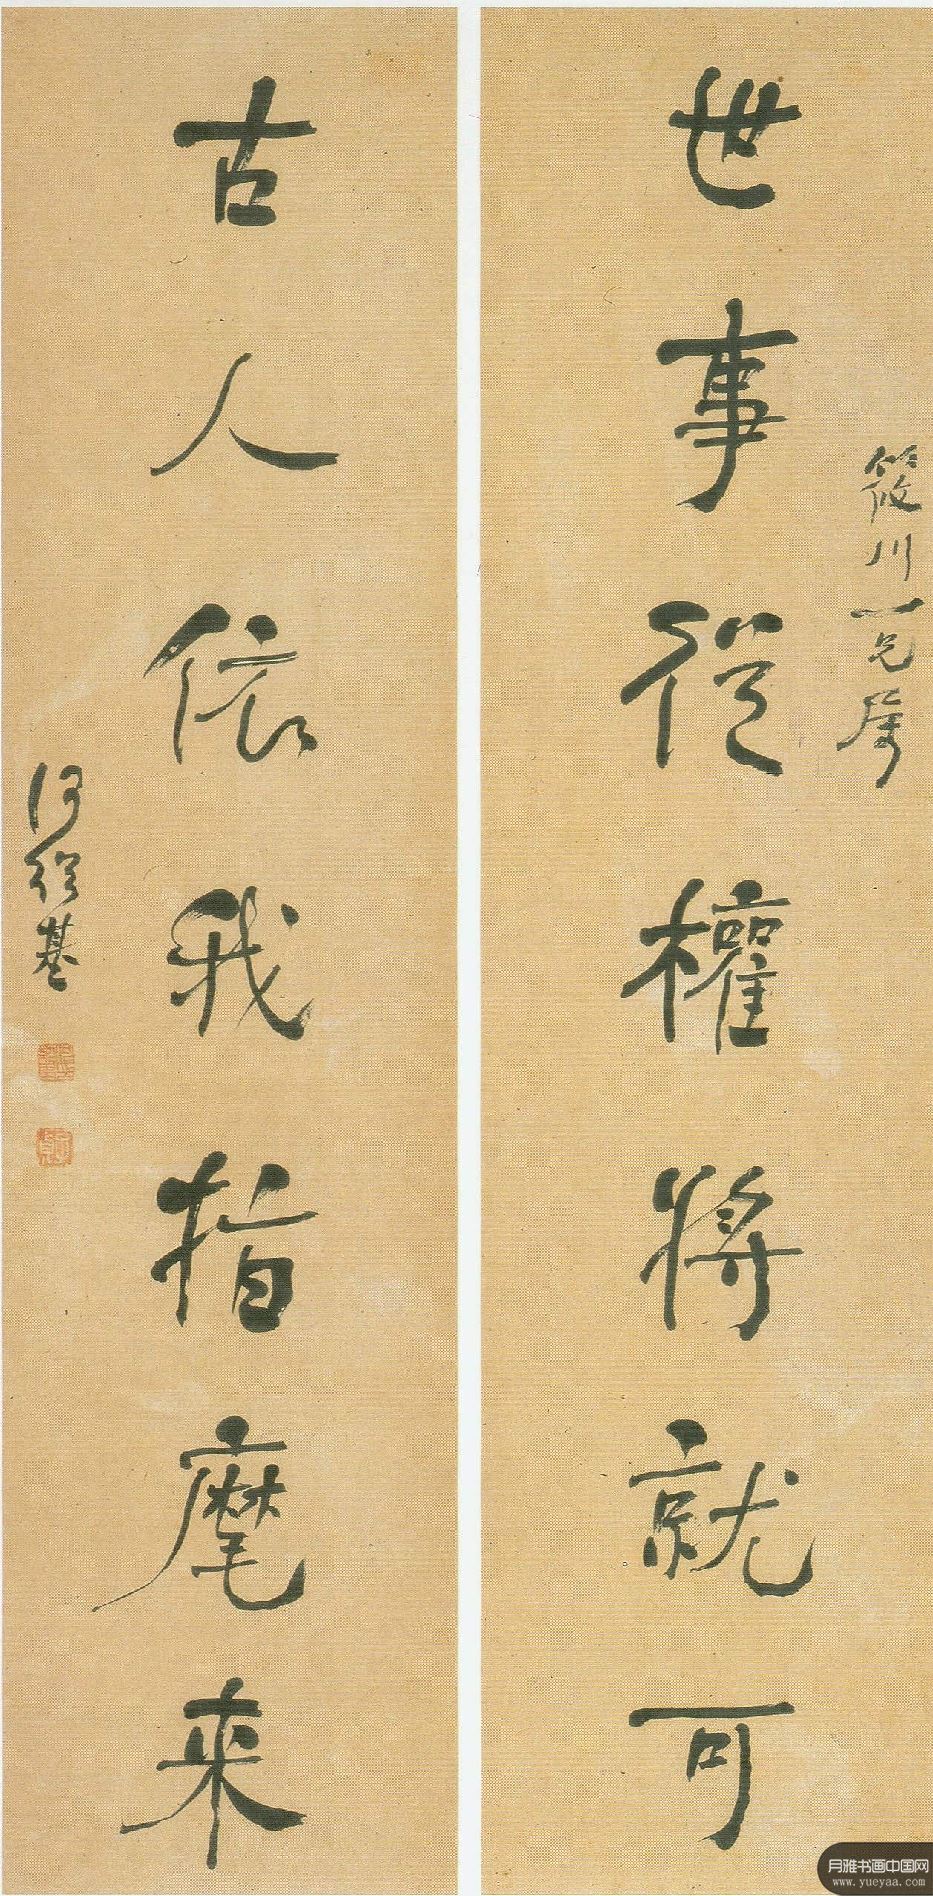 筱川一兄屬
世事從權將就可
古人依我指麾來
何紹基
子貞
月雅书画中国网
www.yueyaa.com